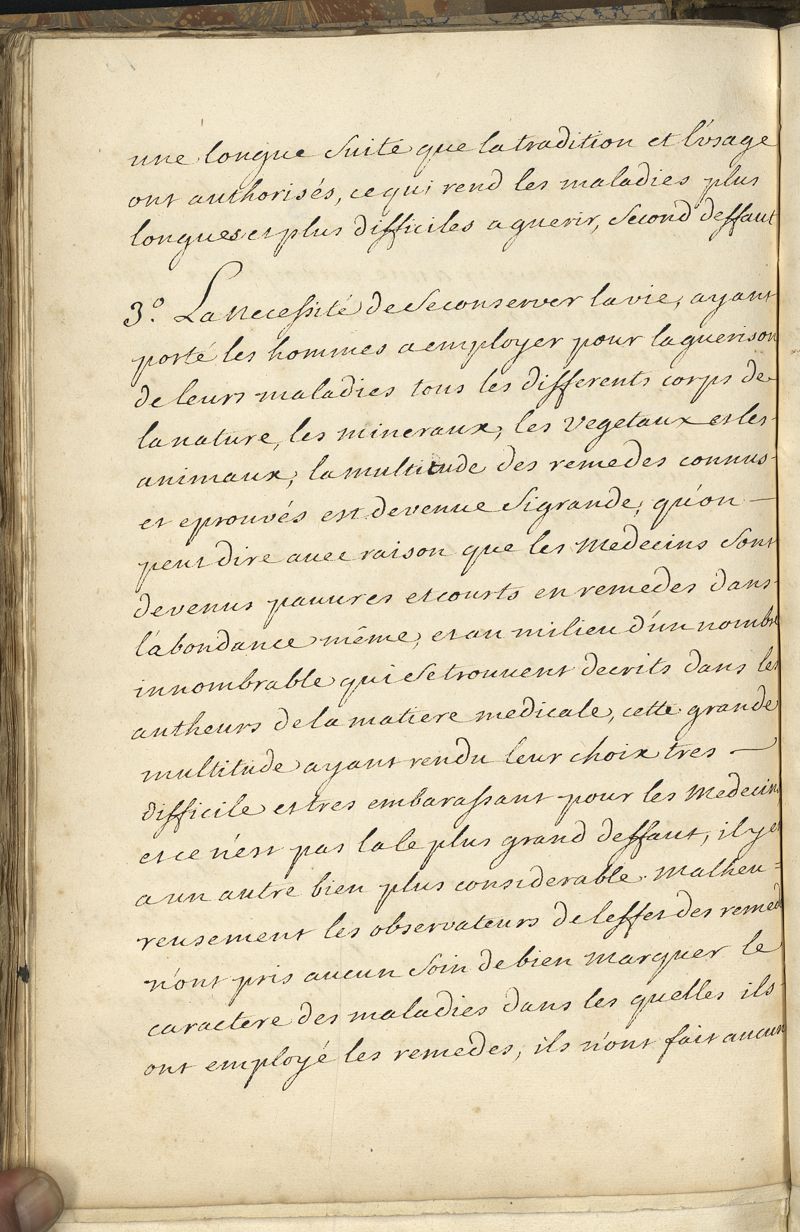 une longue suite que la tradition et l'usage
ont authorisés, ce qui rend les maladies plus
longues et plus difficiles a guerir, second deffaut
3.° La necessité de se conserver la vie, ayant
porté les hommes a employer pour la guerison
de leurs maladies tous les differents corps de
la nature, les mineraux, les vegetaux et les
animaux, la multitude des remedes connus
et eprouvés est devenue si grande, qu'on —
peut dire avec raison que les Medecins sont
devenus pauures et courts en remedes dans
l'abondance même, et au milieu d'un nombre
innombrable qui se trouuent decrits dans les
autheurs de la matiere medicale, cette grande
multitude ayant rendu leur choix tres —
difficile et tres embarassant pour les Medecins
et ce n'est pas la le plus grand deffaut, il y en
a un autre bien plus considerable. Malheu=
reusement les observateurs de l'effet des remed
n'ont pris aucun soin de bien marquer le
caractere des maladies dans les quelles ils
ont employé les remedes, ils n'ont fait aucun